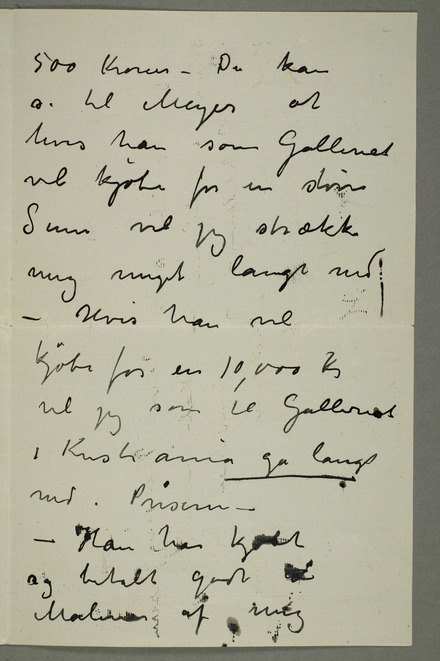 500 Kroner – Du kan
s. til Meyer at
hvis han som Galleriet
vil kjøbe for en større
Sum vil jeg strække
mig meget langt ned
– Hvis han vil
kjøbe for en 10,000 Kr
vil jeg som til Galleriet
i Kristiania gå langt
ned . Prisern –
– Han har kjøbt
og betalt godt
Malerier af mig